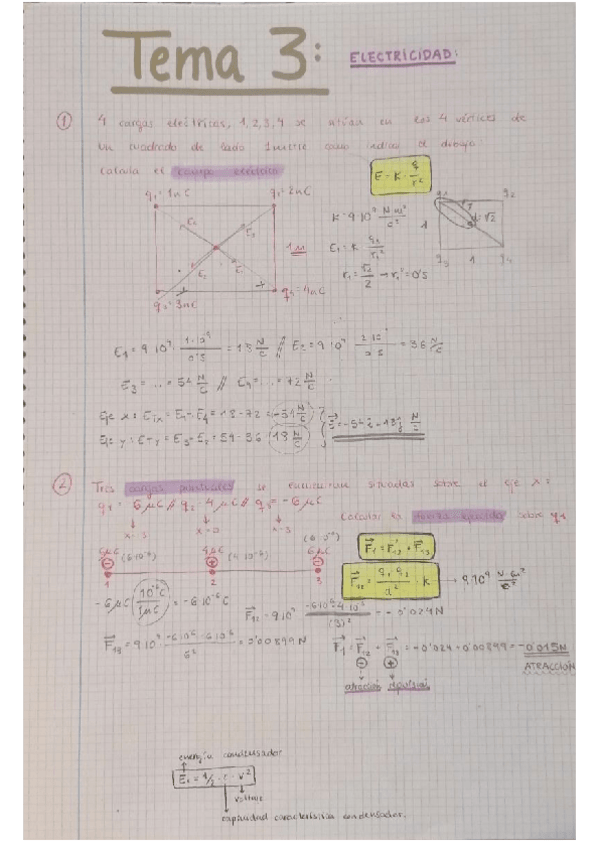 Tema 3: ELECTRICIDAD:
① 4 cargas eléctricas, 1, 2, 3, 4 se sitúan en los 4 vértices de
un cuadrado de lado 1 metro como indica el dibujo.
Calcula el campo eléctrico
E = K · q/r²
q₁ = 1nC q₂ = 2nC
K = 9·10⁹ N m²/C²
E₁ = K · q₁/r₁²
r₁ = √2/2 → r₁² = 0'5
1M
q₃ = 3nC q₄ = 4nC
q₂
1 √2
q₃ 1 q₄
E₁ = 9·10⁹ · = 18 N/C // E₂ = 9·10⁹ = 36 N/C
E₃ = ... = 54 N/C // E₄ = ... = 72 N/C
Eje x: = 18 - 72 = -54 N/C
Eje y: = 54 - 36 18 N/C
② Tres cargas puntuales se encuentran situadas sobre el eje x:
q₁ = 6μC // q₂ = 4μC // q₃ = -6μC
x=0
Calcular la fuerza ejercida sobre q₁
F₁ = F₁₂ + F₁₃
6μC (6·10⁻⁶) 4μC (4·10⁻⁶) 6μC (6·10⁻⁶)
1 2 3
F₁₂ = q₁·q₂/d² · K → 9·10⁹
-6μC · 10⁻⁶C/1μC = -6·10⁻⁶C
F₁₂ = 9·10⁹ · -6·10⁻⁶·4·10⁻⁶/(3)² = -0'024N
F₁₃ = 9·10⁹ · -6·10⁻⁶·-6·10⁻⁶/6² = 0'00899 N
F₁ = F₁₂ + F₁₃ = -0'024 + 0'00899 = -0'015N
ATRACCIÓN
atracción repulsión
energía condensador
E = 1/2 · c · v²
voltaje
capacidad característica condensador.